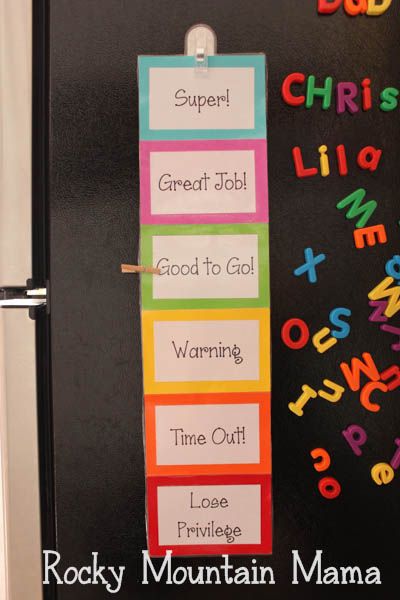 Super!
Great Job!
Good to Go!
Warning
Time Out!
Lose
Privilege
Dad
Chris
Lila
Me
Rocky Mountain Mama